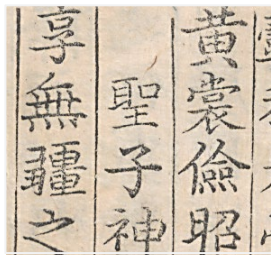 黃裳儉昭
聖子神
享無疆之